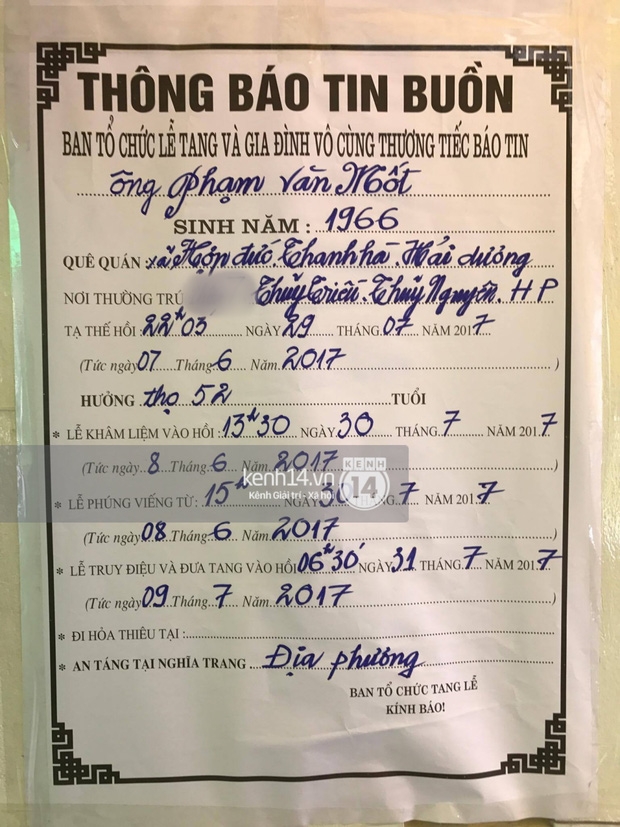 THÔNG BÁO TIN BUỒN
BAN TỔ CHỨC LỄ TANG VÀ GIA ĐÌNH VÔ CÙNG THƯƠNG TIẾC BÁO TIN
ông Phạm Văn Mốt
SINH NĂM : 1966
QUÊ QUÁN : xã Hợp đức Thanh hà. Hải dương
NƠI THƯỜNG TRÚ Thuỷ Triều. Thuỷ Nguyên. HP
TẠ THẾ HỒI : 22h03 NGÀY 29 THÁNG 07 NĂM 2017
(Tức ngày 07 Tháng 6 Năm 2017)
HƯỞNG thọ 52 TUỔI
* LỄ KHÂM LIỆM VÀO HỒI : 13h30 NGÀY 30 THÁNG 7 NĂM 2017
(Tức ngày 8 Tháng 6 Năm 2017)
kenh14.vn
Kênh Giải trí - Xã hội
KENH 14
* LỄ PHÚNG VIẾNG TỪ : 15h NGÀY 30 THÁNG 7 NĂM 2017
(Tức ngày 08 Tháng 6 Năm 2017)
* LỄ TRUY ĐIỆU VÀ ĐƯA TANG VÀO HỒI 06h30' NGÀY 31 THÁNG 7 NĂM 2017
(Tức ngày 09 Tháng 7 Năm 2017)
* ĐI HỎA THIÊU TẠI :
* AN TÁNG TẠI NGHĨA TRANG Địa phương
BAN TỔ CHỨC TANG LỄ
KÍNH BÁO!